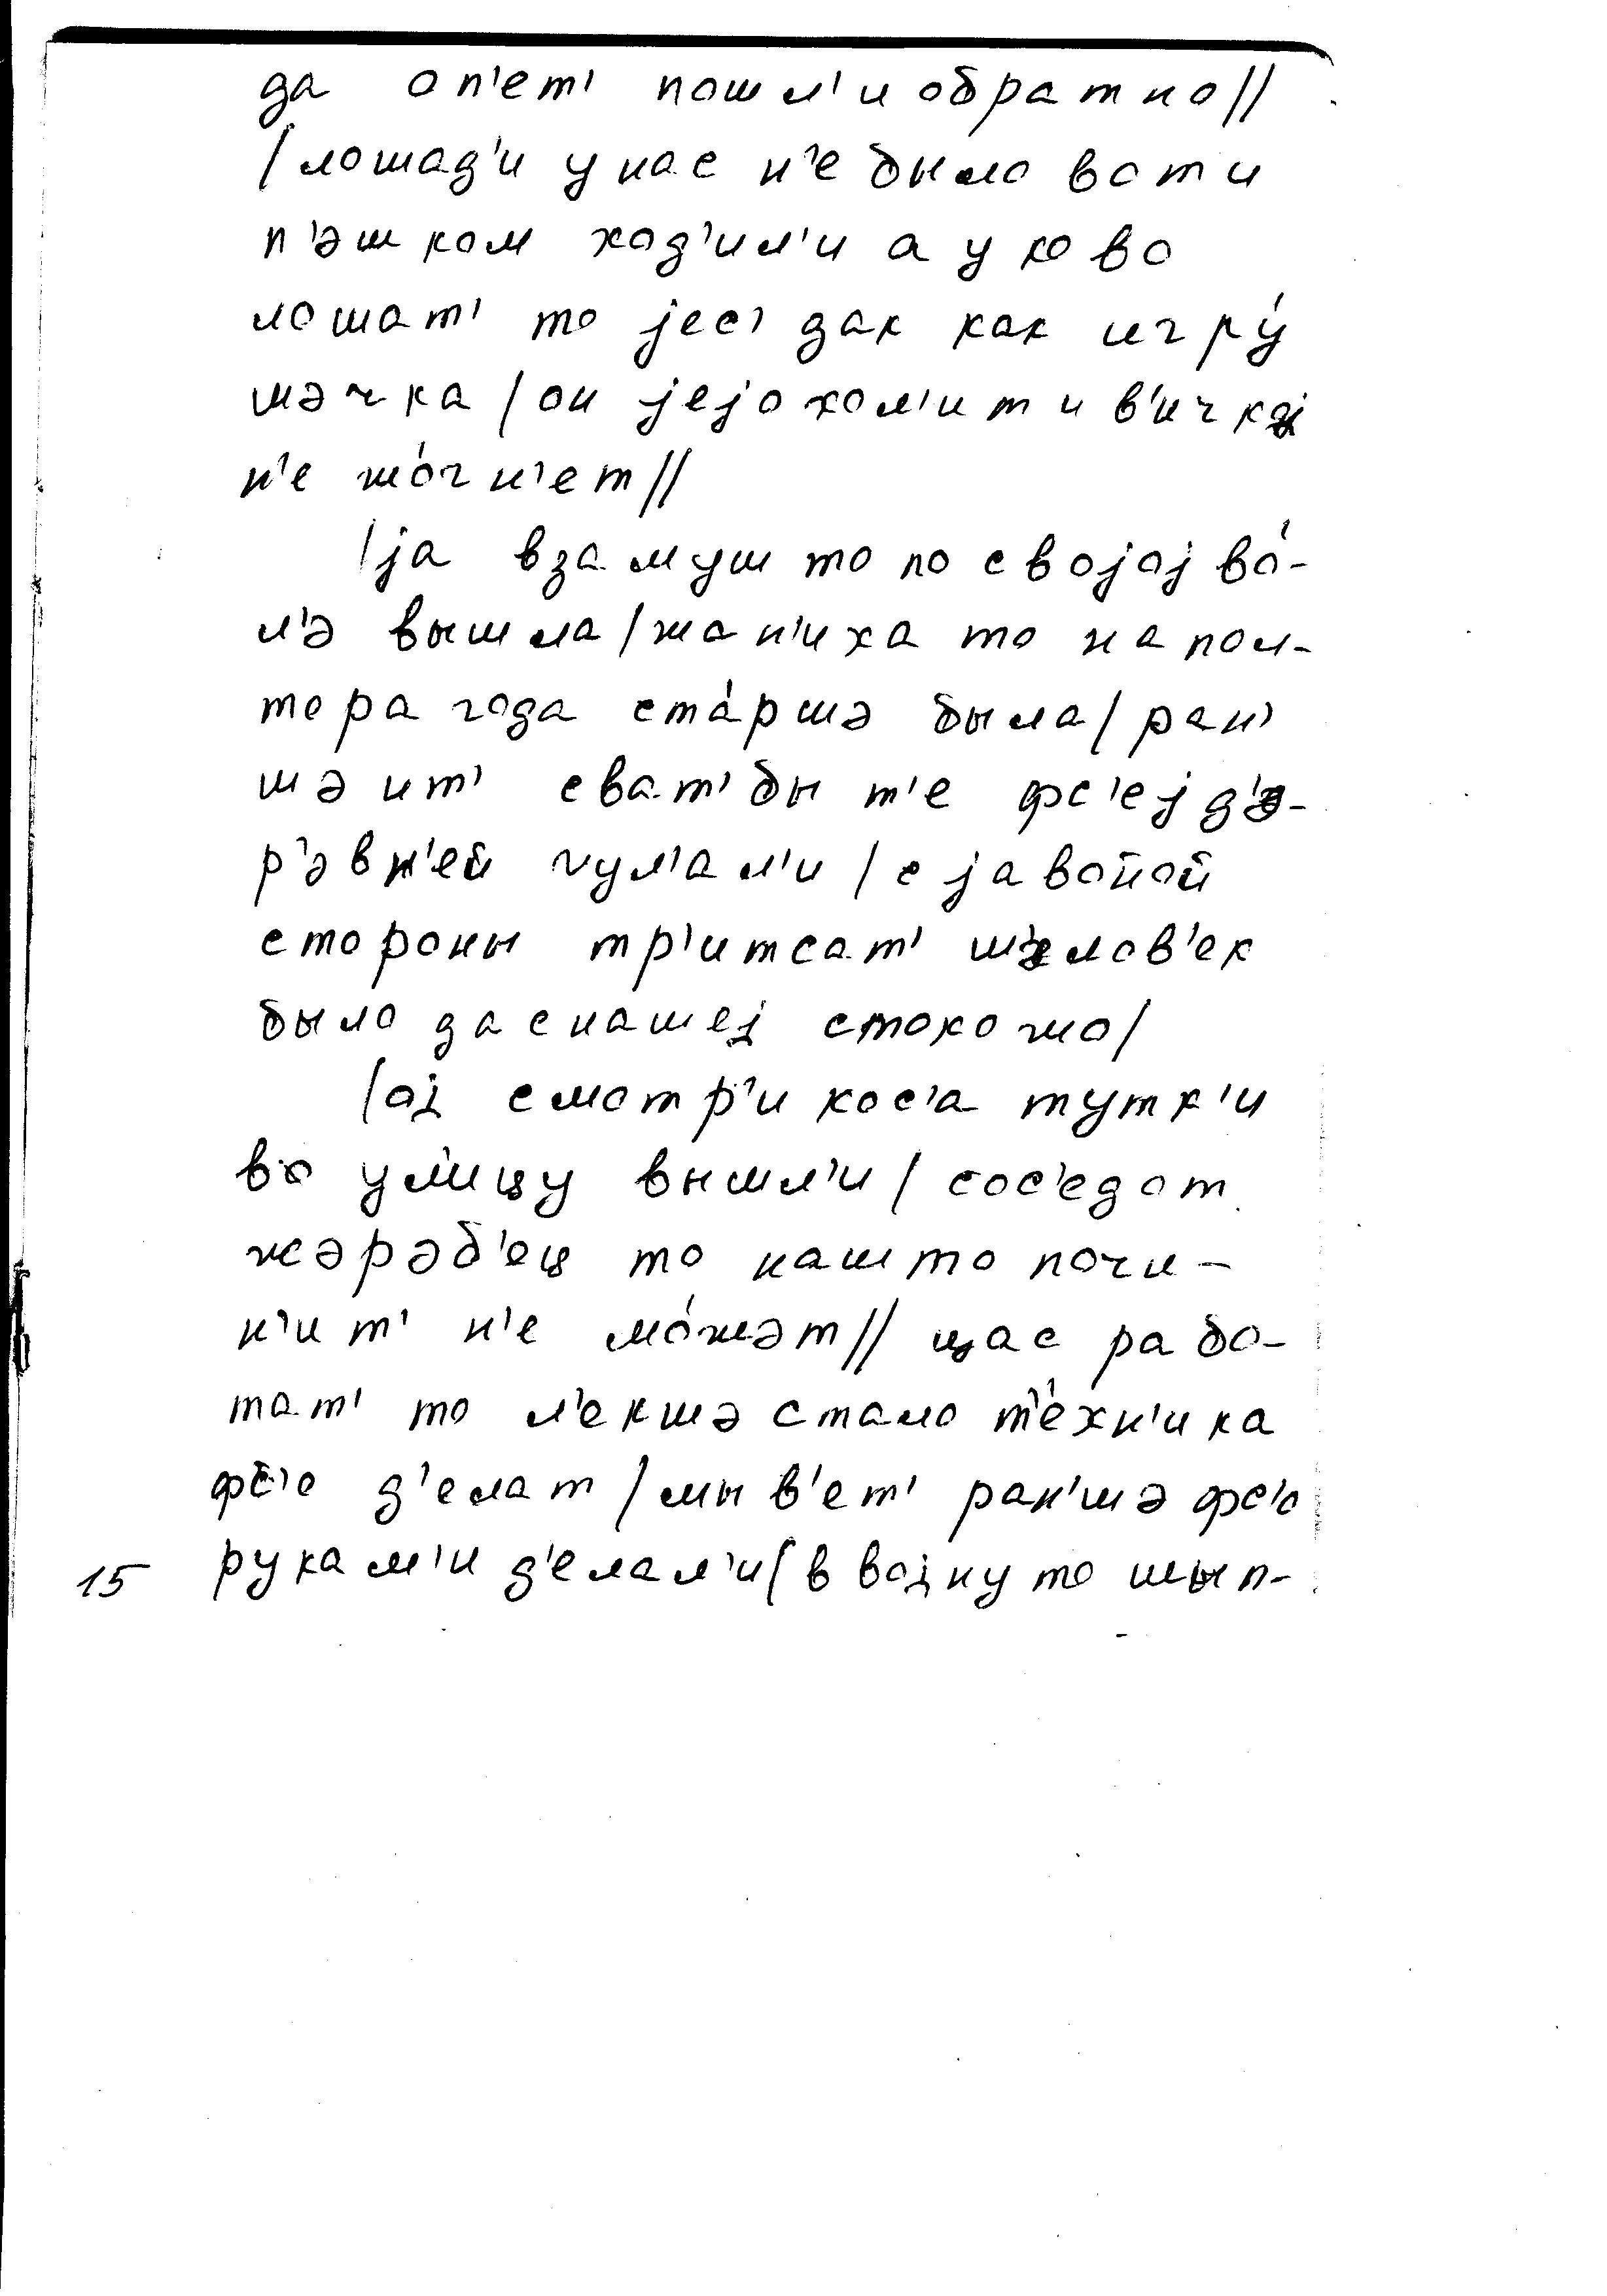 да оп'ет' пошл'и обратно//
/лошад'и у нас н'е было вот и
п'эшком ход'ил'и а у ково
лошат' то jес' дак как игру́
шэчка/он jejо холит и в'ичкаj
н'е жо́гн'ет//
/jа взамуш то по своjоj во́-
л'э вышла/жан'иха то на пол-
тора года ста́ршэ была/ран'
шэ ит' сват'бы т'е фс'еj д'э-
р'эвн'ей гул'ал'и/с jавоной
стороны тр'итсат' ш'элов'ек
было да с нашеj стоко жо/
/оj смотр'и кос'а тутк'и
во ул'ицу вышл'и/сос'едот
жэрэб'ец то нашто почи-
н'ит' н'е мо́жэт// щас рабо-
тат' то л'екшэ стало т'е́хн'ика
фс'о д'елат/мы в'ет' ран'шэ фс'о
15 рукам'и д'елал'и/в воjну то шып-